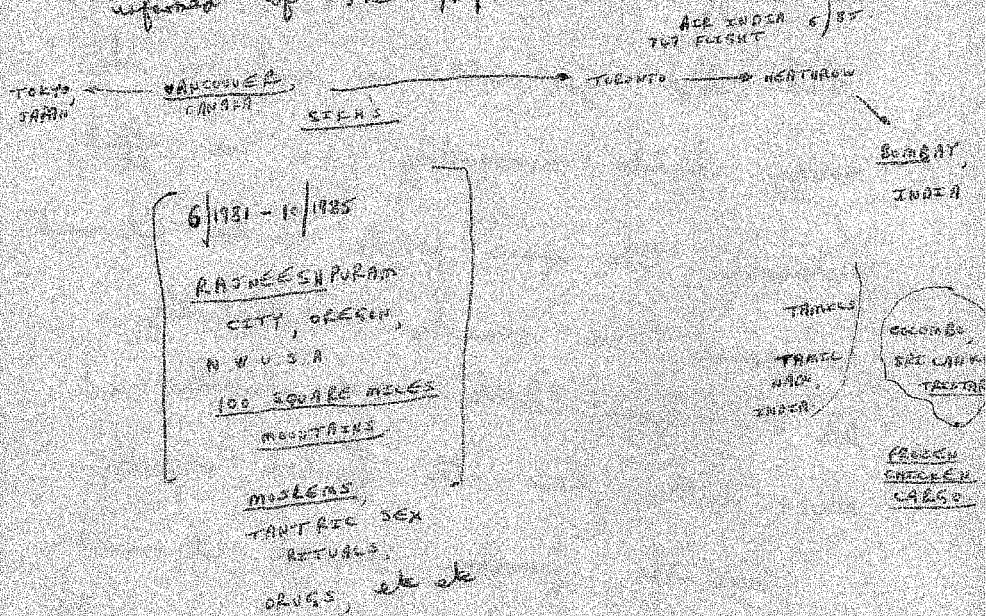 AIR INDIA 6/85
747 FLIGHT
TOKYO, JAPAN
VANCOUVER, CANADA
SIKHS
TORONTO
HEATHROW
BOMBAY,
INDIA
6/1981 - 10/1985
RAJNEESHPURAM
CITY, OREGON,
N W U S A
100 SQUARE MILES
MOUNTAINS
MOSLEMS,
TANTRIC SEX
RITUALS,
DRUGS, etc etc
TAMILS
TAMIL
NADU,
INDIA
COLOMBO,
SRI LANKA
FROZEN
CHICKEN
CARGO